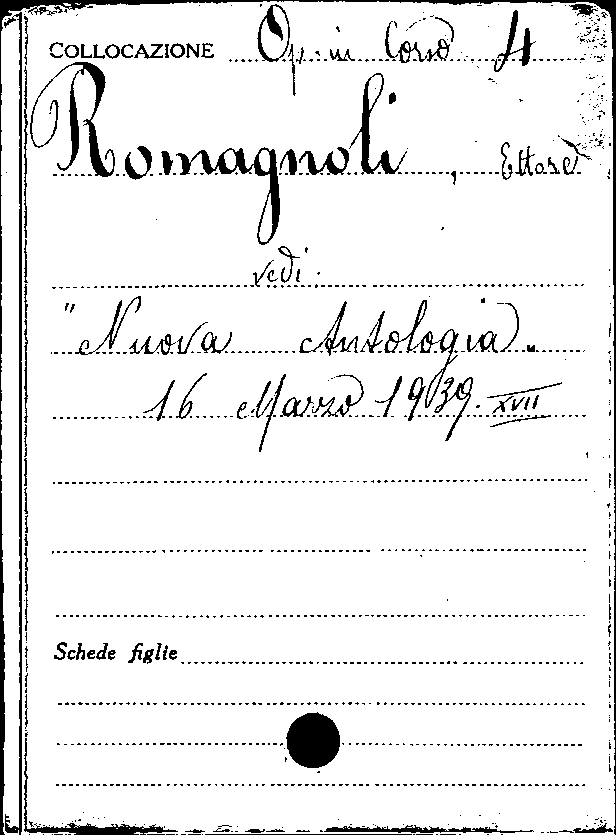 COLLOCAZIONE Op. in Corso 4
Romagnoli, Ettore
vedi:
"Nuova Antologia„
16 Marzo 1939. XVII
Schede figlie